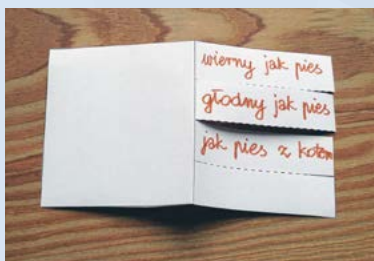 wierny jak pies
głodny jak pies
jak pies z kotem